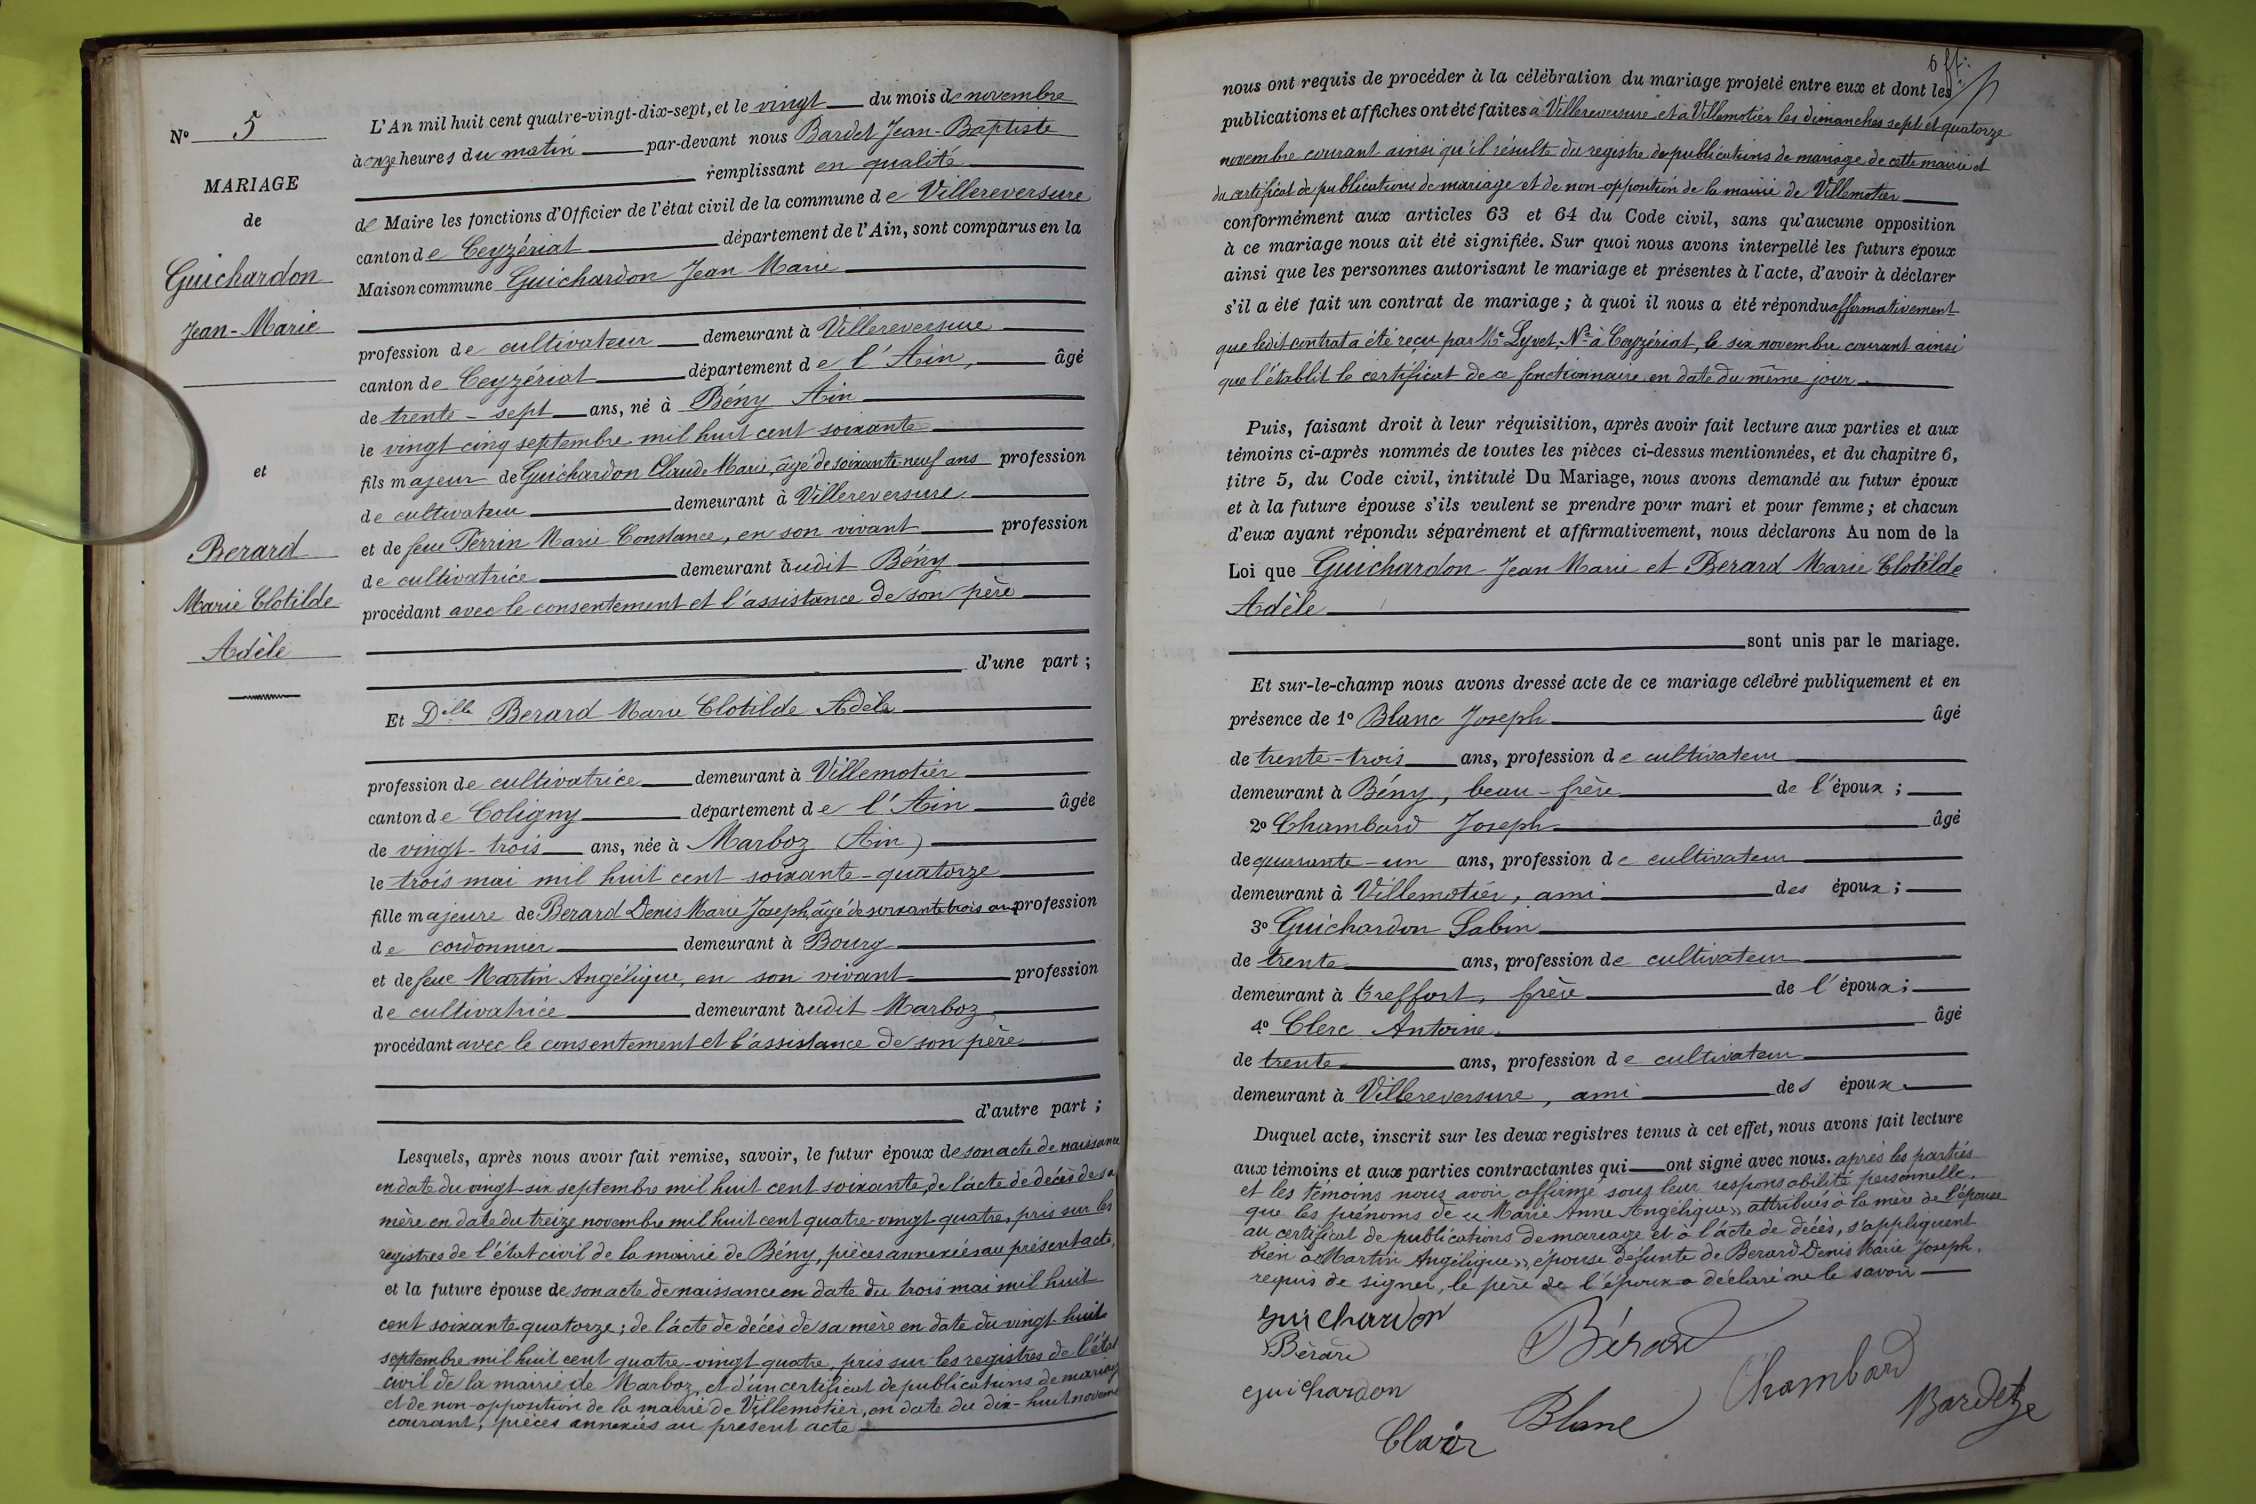 N° 5
MARIAGE
de
Guichardon
Jean-Marie
et
Berard
Marie Clotilde
Adèle
L'An mil huit cent quatre-vingt-dix-sept, et le vingt du mois de novembre
à onze heures du matin par-devant nous Bardet Jean-Baptiste
remplissant en qualité
de Maire les fonctions d'Officier de l'état civil de la commune de Villereversure
canton de Ceyzériat département de l'Ain, sont comparus en la
Maison commune Guichardon Jean Marie
profession de cultivateur demeurant à Villereversure
canton de Ceyzériat département de l'Ain, âgé
de trente-sept ans, né à Bény Ain
le vingt-cinq septembre mil huit cent soixante
fils majeur de Guichardon Claude Marie, âgé de soixante-neuf ans profession
de cultivateur demeurant à Villereversure
et de feue Perrin Marie Constance, en son vivant profession
de cultivatrice demeurant audit Bény
procédant avec le consentement et l'assistance de son père
d'une part ;
Et Dlle Berard Marie Clotilde Adèle
profession de cultivatrice demeurant à Villemotier
canton de Coligny département de l'Ain âgée
de vingt-trois ans, née à Marboz (Ain)
le trois mai mil huit cent soixante-quatorze
fille majeure de Berard Denis Marie Joseph, âgé de soixante trois ans profession
de cordonnier demeurant à Bourg
et de feue Martin Angélique, en son vivant profession
de cultivatrice demeurant audit Marboz
procédant avec le consentement et l'assistance de son père
d'autre part ;
Lesquels, après nous avoir fait remise, savoir, le futur époux de son acte de naissance
en date du vingt-six septembre mil huit cent soixante, de l'acte de décès de sa
mère en date du treize novembre mil huit cent quatre-vingt quatre, pris sur les
registres de l'état civil de la mairie de Bény, pièces annexées au présent acte,
et la future épouse de son acte de naissance en date du trois mai mil huit
cent soixante quatorze ; de l'acte de décès de sa mère en date du vingt-huit
septembre mil huit cent quatre-vingt quatre, pris sur les registres de l'état
civil de la mairie de Marboz, et d'un certificat de publications de mariage
et de non-opposition de la mairie de Villemotier, en date du dix-huit novembre
courant, pièces annexées au présent acte
6 ft:
nous ont requis de procéder à la célébration du mariage projeté entre eux et dont les
publications et affiches ont été faites à Villereversure et à Villemotier les dimanches sept et quatorze
novembre courant ainsi qu'il résulte du registre de publications de mariage de cette mairie et
du certificat de publications de mariage et de non-opposition de la mairie de Villemotier
conformément aux articles 63 et 64 du Code civil, sans qu'aucune opposition
à ce mariage nous ait été signifiée. Sur quoi nous avons interpellé les futurs époux
ainsi que les personnes autorisant le mariage et présentes à l'acte, d'avoir à déclarer
s'il a été fait un contrat de mariage ; à quoi il nous a été répondu affirmativement
que ledit contrat a été reçu par Me Lyvet, Nre à Ceyzériat, le six novembre courant ainsi
que l'établit le certificat de ce fonctionnaire en date du même jour.
Puis, faisant droit à leur réquisition, après avoir fait lecture aux parties et aux
témoins ci-après nommés de toutes les pièces ci-dessus mentionnées, et du chapitre 6,
titre 5, du Code civil, intitulé Du Mariage, nous avons demandé au futur époux
et à la future épouse s'ils veulent se prendre pour mari et pour femme ; et chacun
d'eux ayant répondu séparément et affirmativement, nous déclarons Au nom de la
Loi que Guichardon Jean Marie et Berard Marie Clotilde
Adèle
sont unis par le mariage.
Et sur-le-champ nous avons dressé acte de ce mariage célébré publiquement et en
présence de 1° Blanc Joseph âgé
de trente-trois ans, profession de cultivateur
demeurant à Bény, beau-frère de l'époux ;
2° Chambard Joseph âgé
de quarante-un ans, profession de cultivateur
demeurant à Villemotier, ami des époux ;
3° Guichardon Sabin
de trente ans, profession de cultivateur
demeurant à Treffort, frère de l'époux ;
4° Clerc Antoine âgé
de trente ans, profession de cultivateur
demeurant à Villereversure, ami des époux.
Duquel acte, inscrit sur les deux registres tenus à cet effet, nous avons fait lecture
aux témoins et aux parties contractantes qui ont signé avec nous. après les parties
et les témoins nous avoir affirmé sous leur responsabilité personnelle,
que les prénoms de « Marie Anne Angélique » attribués à la mère de l'épouse
au certificat de publications de mariage et à l'acte de décès, s'appliquent
bien à « Martin Angélique », épouse défunte de Berard Denis Marie Joseph.
requis de signer, le père de l'époux a déclaré ne le savoir
guichardon
Bérard
Bérard
guichardon
Chambard
Blanc
Bardet